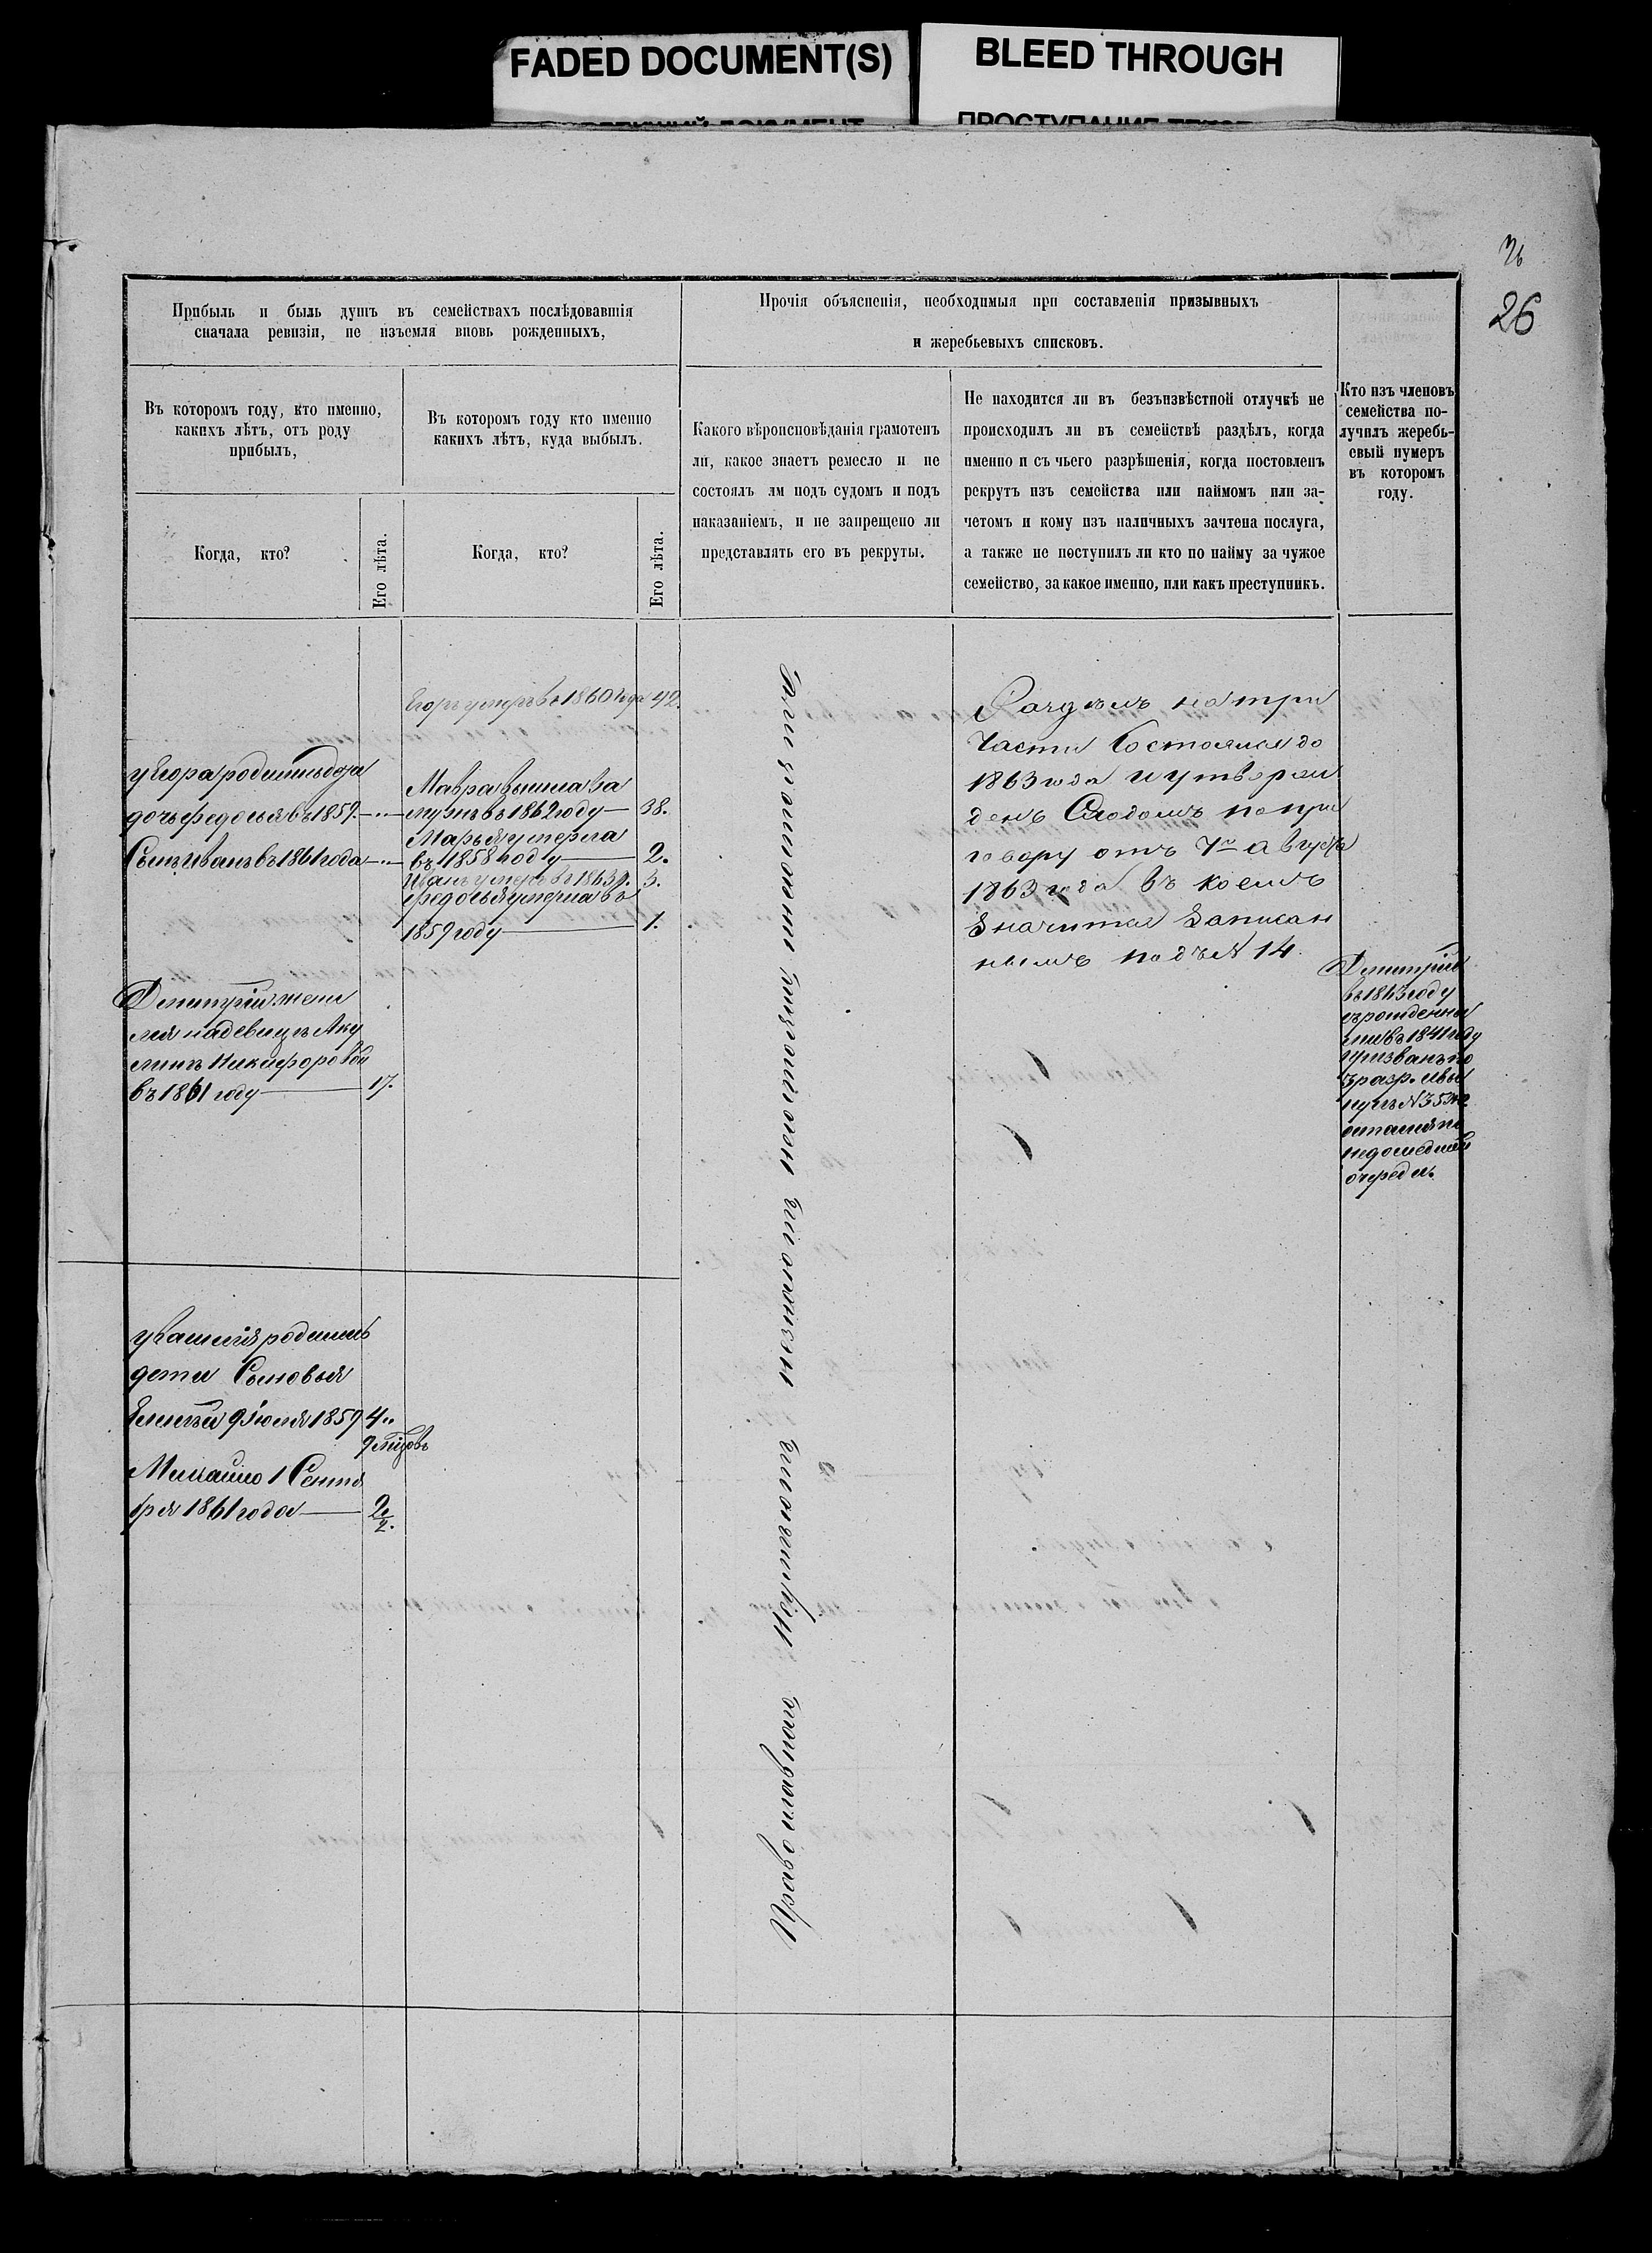 FADED DOCUMENT(S)
BLEED THROUGH
26
26
Прибыль и быль душъ въ семействахъ послѣдовавшія
сначала ревизіи, не изъемля вновь рожденныхъ,
Прочія объясненія, необходимыя при составленія призывныхъ
и жеребьевыхъ списковъ.
Въ которомъ году, кто именно,
какихъ лѣтъ, отъ роду
прибылъ,
Въ которомъ году кто именно
какихъ лѣтъ, куда выбылъ.
Какого вѣроисповѣданія грамотенъ
ли, какое знаетъ ремесло и не
состоялъ лм подъ судомъ и подъ
наказаніемъ, и не запрещено ли
представлять его въ рекруты.
Не находится ли въ безъизвѣстной отлучкѣ не
происходилъ ли въ семействѣ раздѣлъ, когда
именно и съ чьего разрѣшенія, когда постовленъ
рекрутъ изъ семейства или наймомъ или за-
четомъ и кому изъ наличныхъ зачтена послуга,
а также не поступилъ ли кто по найму за чужое
семейство, за какое именно, или какъ преступникъ.
Кто изъ членовъ
семейства по-
лучилъ жеребь-
евый нумеръ
въ которомъ
году.
Когда, кто?
Его лѣта.
Когда, кто?
Его лѣта.
Егоръ умеръ въ 1860 года 42.
у Егора родились дѣти
дочь федосья въ 1857.
Сынъ Иванъ въ 1861 года
Мавра вышла за
мужъ въ 1862 году 38.
Марья умерла
въ 1858 году 2.
Иванъ умеръ въ 1863 г. 3.
Федосья умерла въ
1859 году 1.
Димитрій жени
лся на девицѣ Аку
линѣ Никифоровой
въ 1861 году 17.
у Василія родились
дети Сыновья
9 Іюля 1859 4
Михайло 1 Сентя
бря 1861 года 2 1/2.
Православнаго
Раздѣлъ на три
Части Состоялся до
1863 года и утверж
денъ Сходомъ по при
говору отъ 7го августа
1863 года въ коемъ
Значится Записан
нымъ подъ N 14.
Димитрій
въ 1863 году
съ рожденны
ми въ 1841 году
призванъ по
3 разр. и вы
нулъ N 353
остался по
недошедшей
очереди.